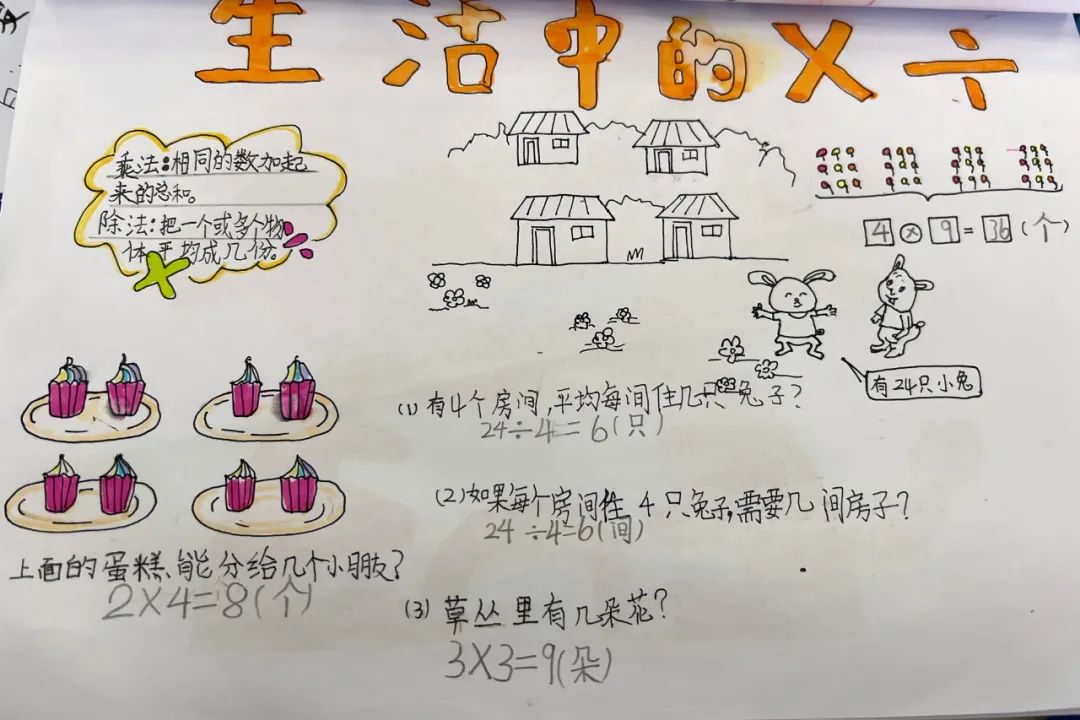 生活中的×÷
乘法:相同的数加起
来的总和。
除法:把一个或多个物
体平均成几份。
4×9=36(个)
有24只小兔
(1)有4个房间,平均每间住几只兔子?
24÷4=6(只)
(2)如果每个房间住4只兔子,需要几间房子?
24÷4=6(间)
(3)草丛里有几朵花?
3×3=9(朵)
上面的蛋糕、能分给几个小朋友?
2×4=8(个)